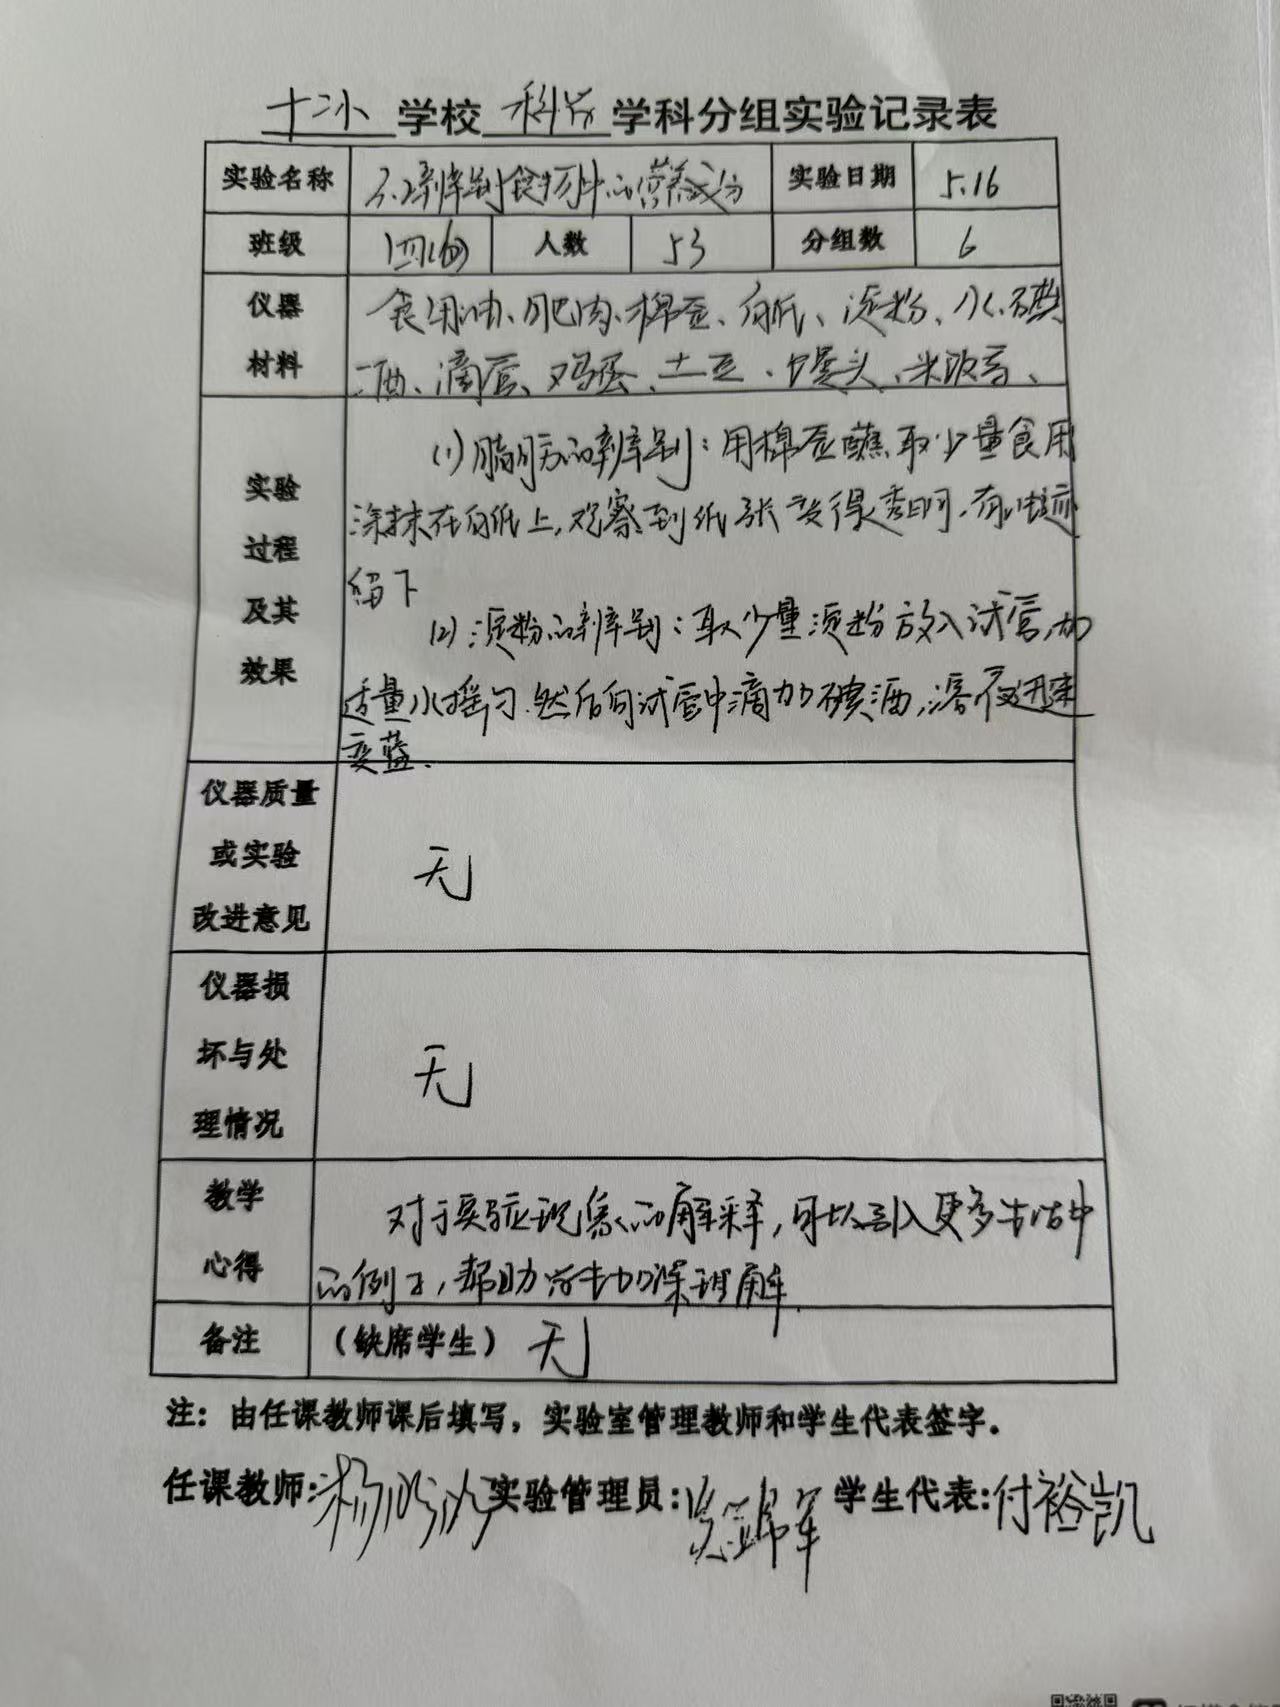 十二小 学校 科学 学科分组实验记录表
实验名称 3.2辨别食物中的营养成分 实验日期 5.16
班级 四(6) 人数 53 分组数 6
仪器材料 食用油、肥肉、棉签、白纸、淀粉、水、碘
酒、滴管、鸡蛋、土豆、馒头、米饭等、
实验过程及其效果 (1)脂肪的辨别：用棉签蘸取少量食用
涂抹在白纸上，观察到纸张变得透明，有油迹
留下
(2)淀粉的辨别：取少量淀粉放入试管，加
适量水摇匀.然后向试管中滴加碘酒，溶液迅速
变蓝.
仪器质量或实验改进意见 无
仪器损坏与处理情况 无
教学心得 对于实验现象的解释，可以引入更多生活中
的例子，帮助学生加深理解.
备注 （缺席学生） 无
注：由任课教师课后填写，实验室管理教师和学生代表签字。
任课教师: 杨 实验管理员: 学生代表: 付裕凯